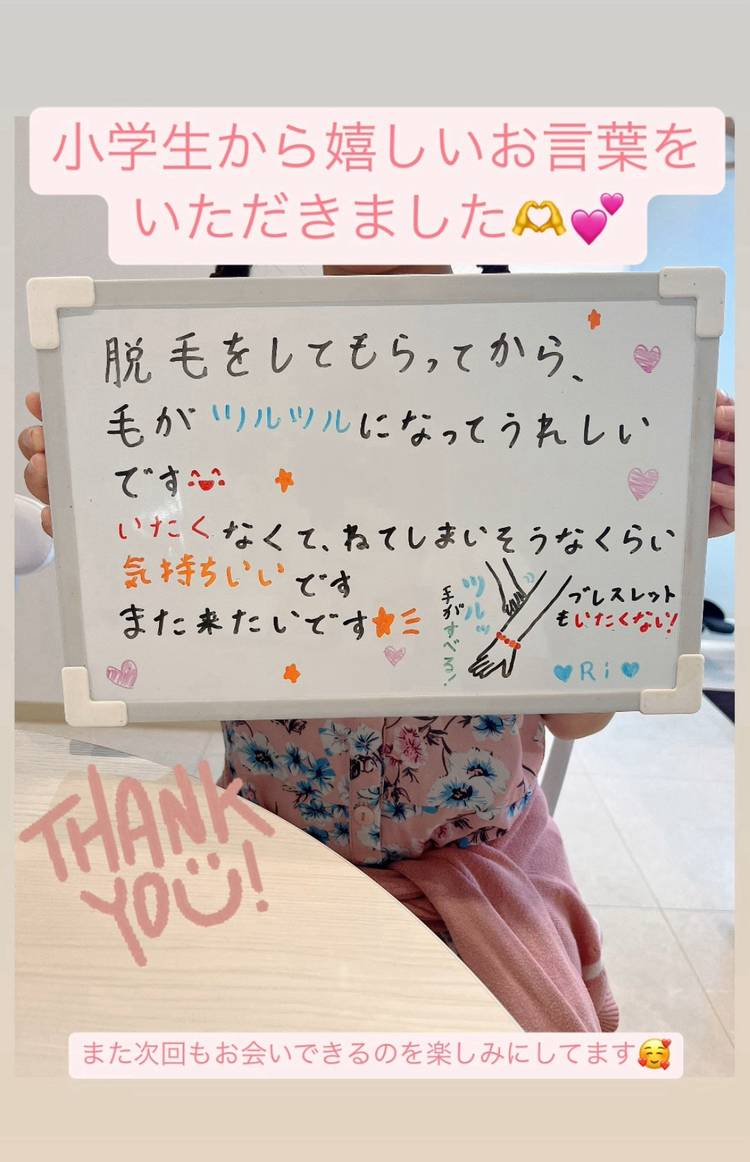 小学生から嬉しいお言葉を
いただきました🫶💕
脱毛をしてもらってから、
毛がツルツルになってうれしい
です
いたくなくて、ねてしまいそうなくらい
気持ちいいです
また来たいです
手がすべる!
ツルッ
ブレスレット
もいたくない!
Ri
THANK
YOU!
また次回もお会いできるのを楽しみにしてます🥰